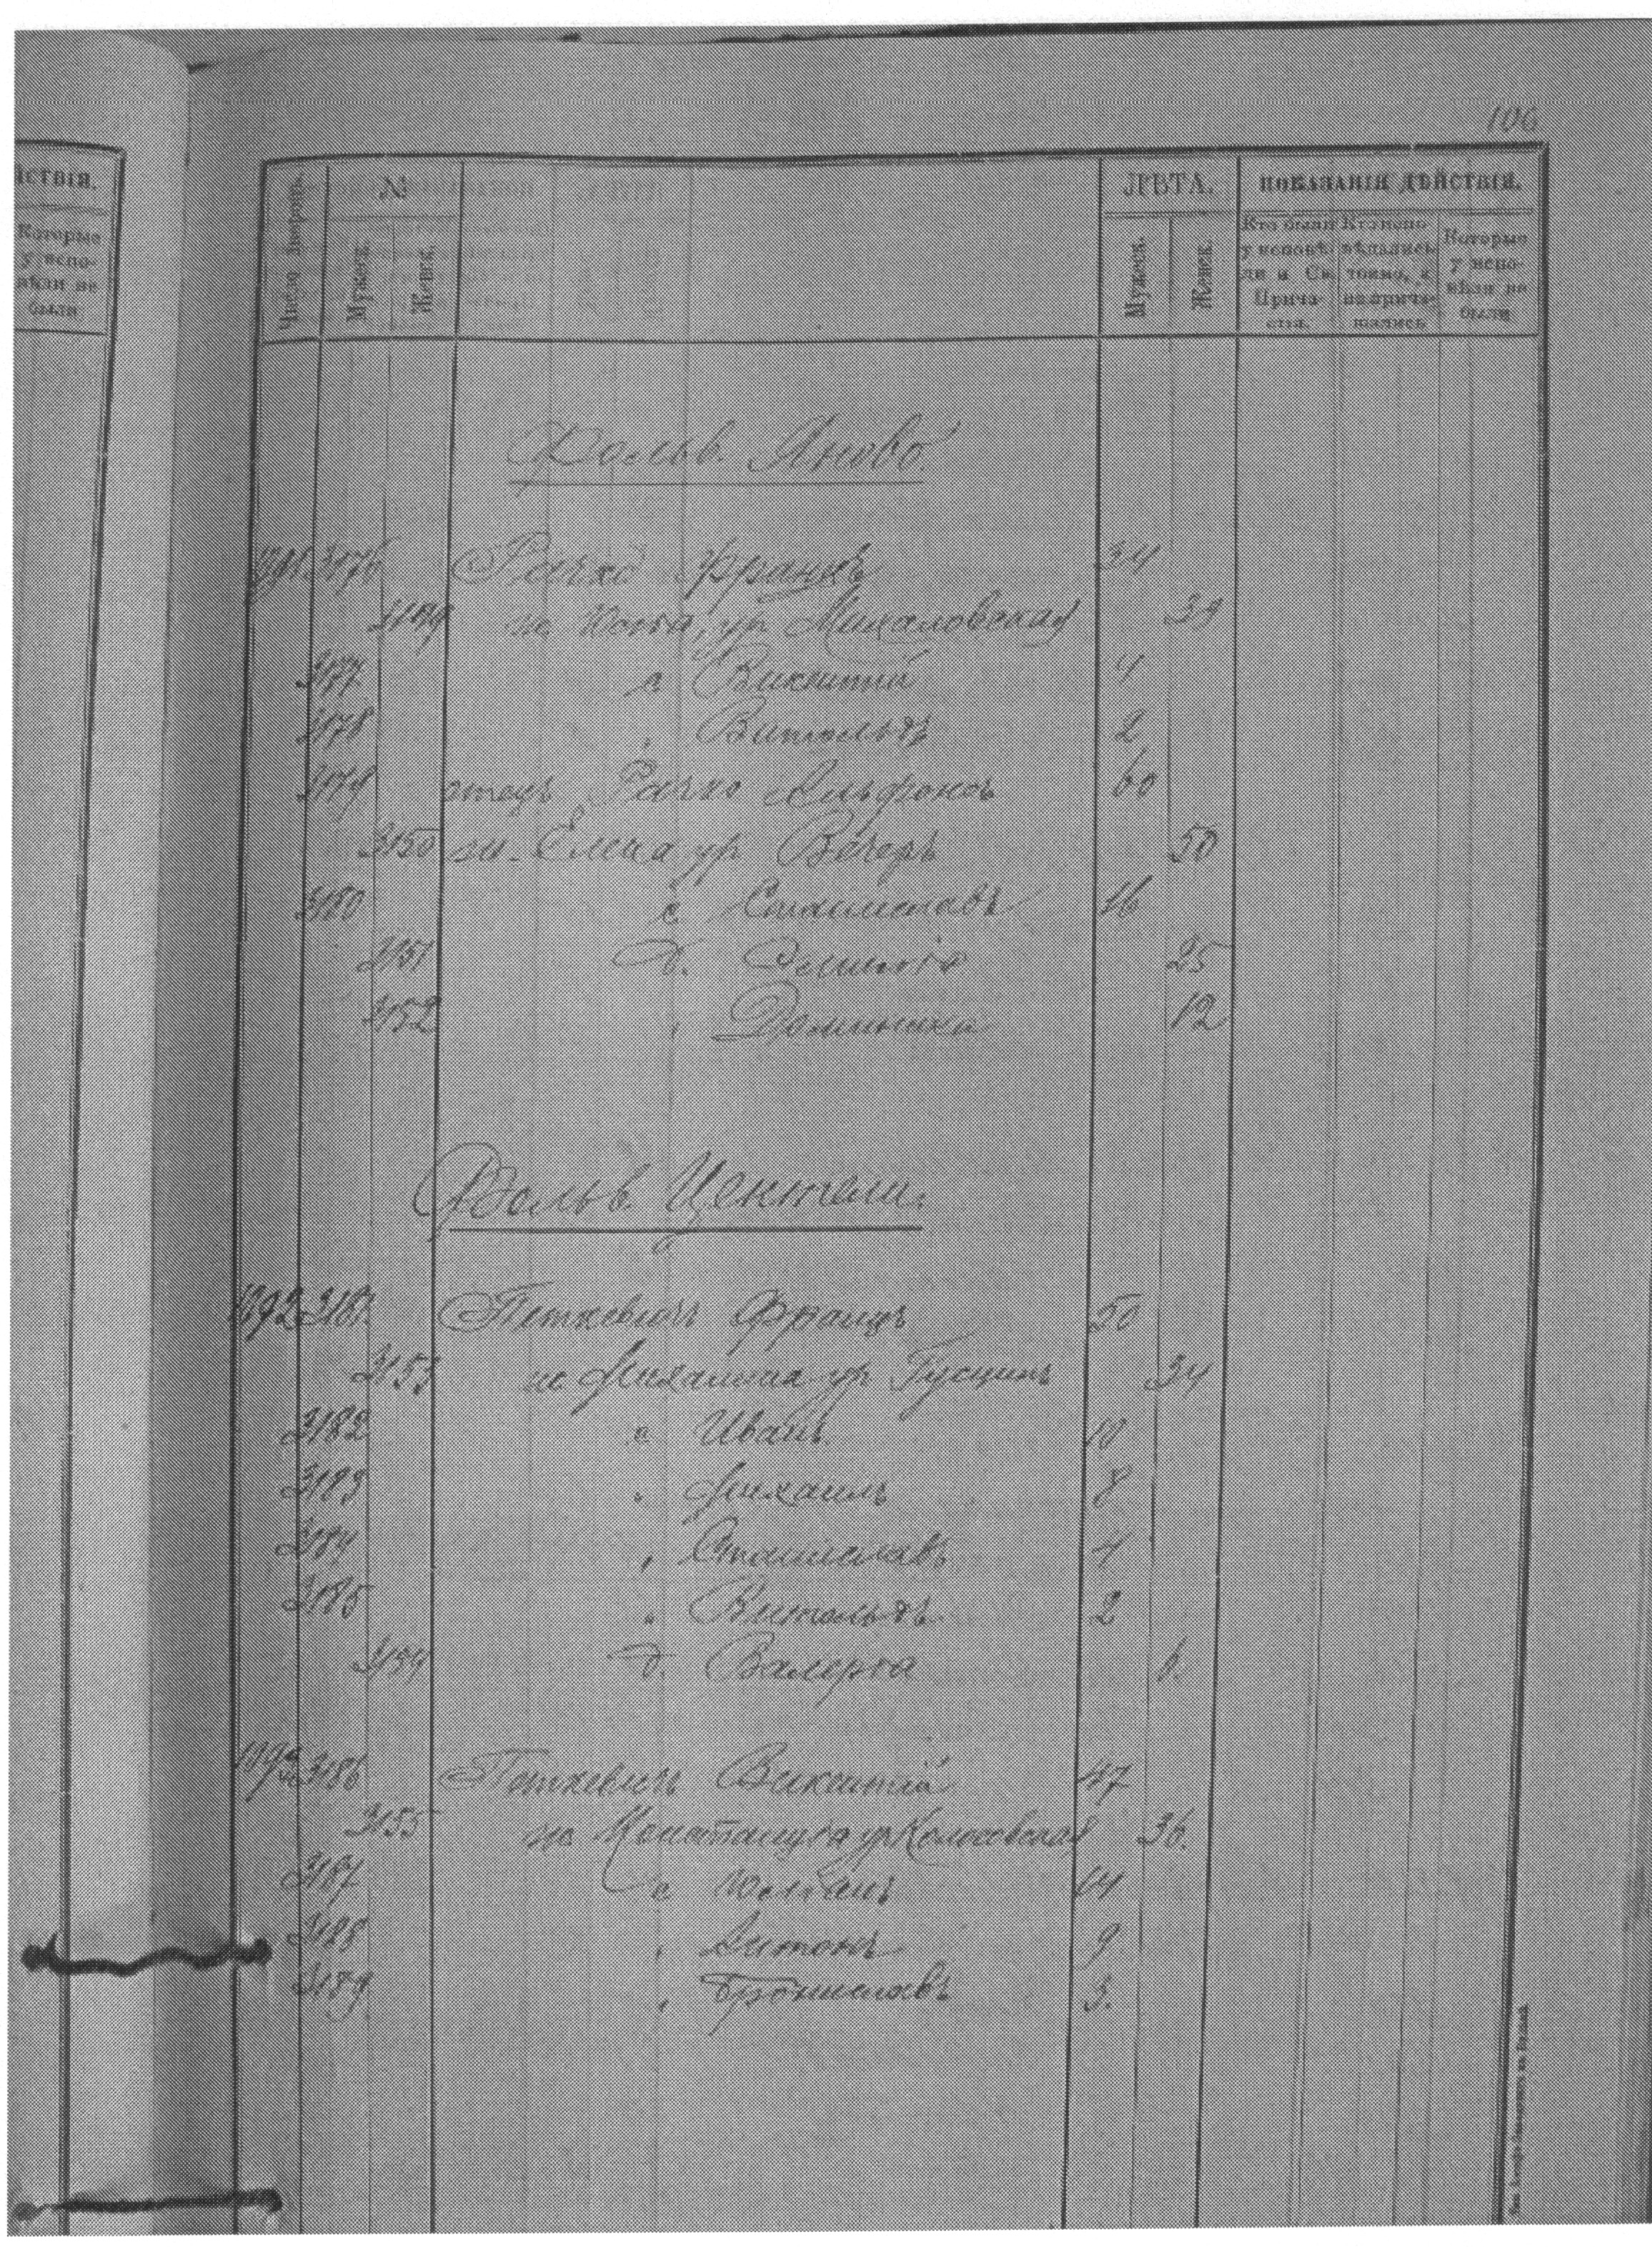 106
ѢЙСТВІЯ.
Которые
у испо-
вѣди не
были
Число дворовъ.
№
Мужеск.
Женск.
ЛѢТА.
Мужеск.
Женск.
ПОКАЗАНІЯ ДѢЙСТВІЯ.
Кто были
у исповѣ-
ди и Св.
Прича-
стія.
Кто испо-
вѣдались
токмо, а
не прича-
щались
Которые
у испо-
вѣди не
были
Фольв. Яново.
3176 Рачко Францъ 34
3149 ж Юзефа, ур Михаловская 39
3177 с Викентій 4
3178 " Витольдъ 2
3179 отецъ Рачко Альфонсъ 60
3150 ж. Елена ур Вечеръ 50
3180 с Станиславъ 16
3151 д. 25
3152 " Доминика 12
Фольв. Цектели.
1992 3181 Петкевичъ Францъ 50
3153 ж Михалина ур 34
3182 с Иванъ 10
3183 " Михаилъ 8
3184 " Станиславъ 4
3185 " Витольдъ 2
3154 д. Валерія 6.
1993 3186 Петкевичъ Викентій 47
3155 ж Констанція ур Колосовская 36.
3187 с Юліанъ 14
3188 " Антонъ 9
3189 " Брониславъ 3.